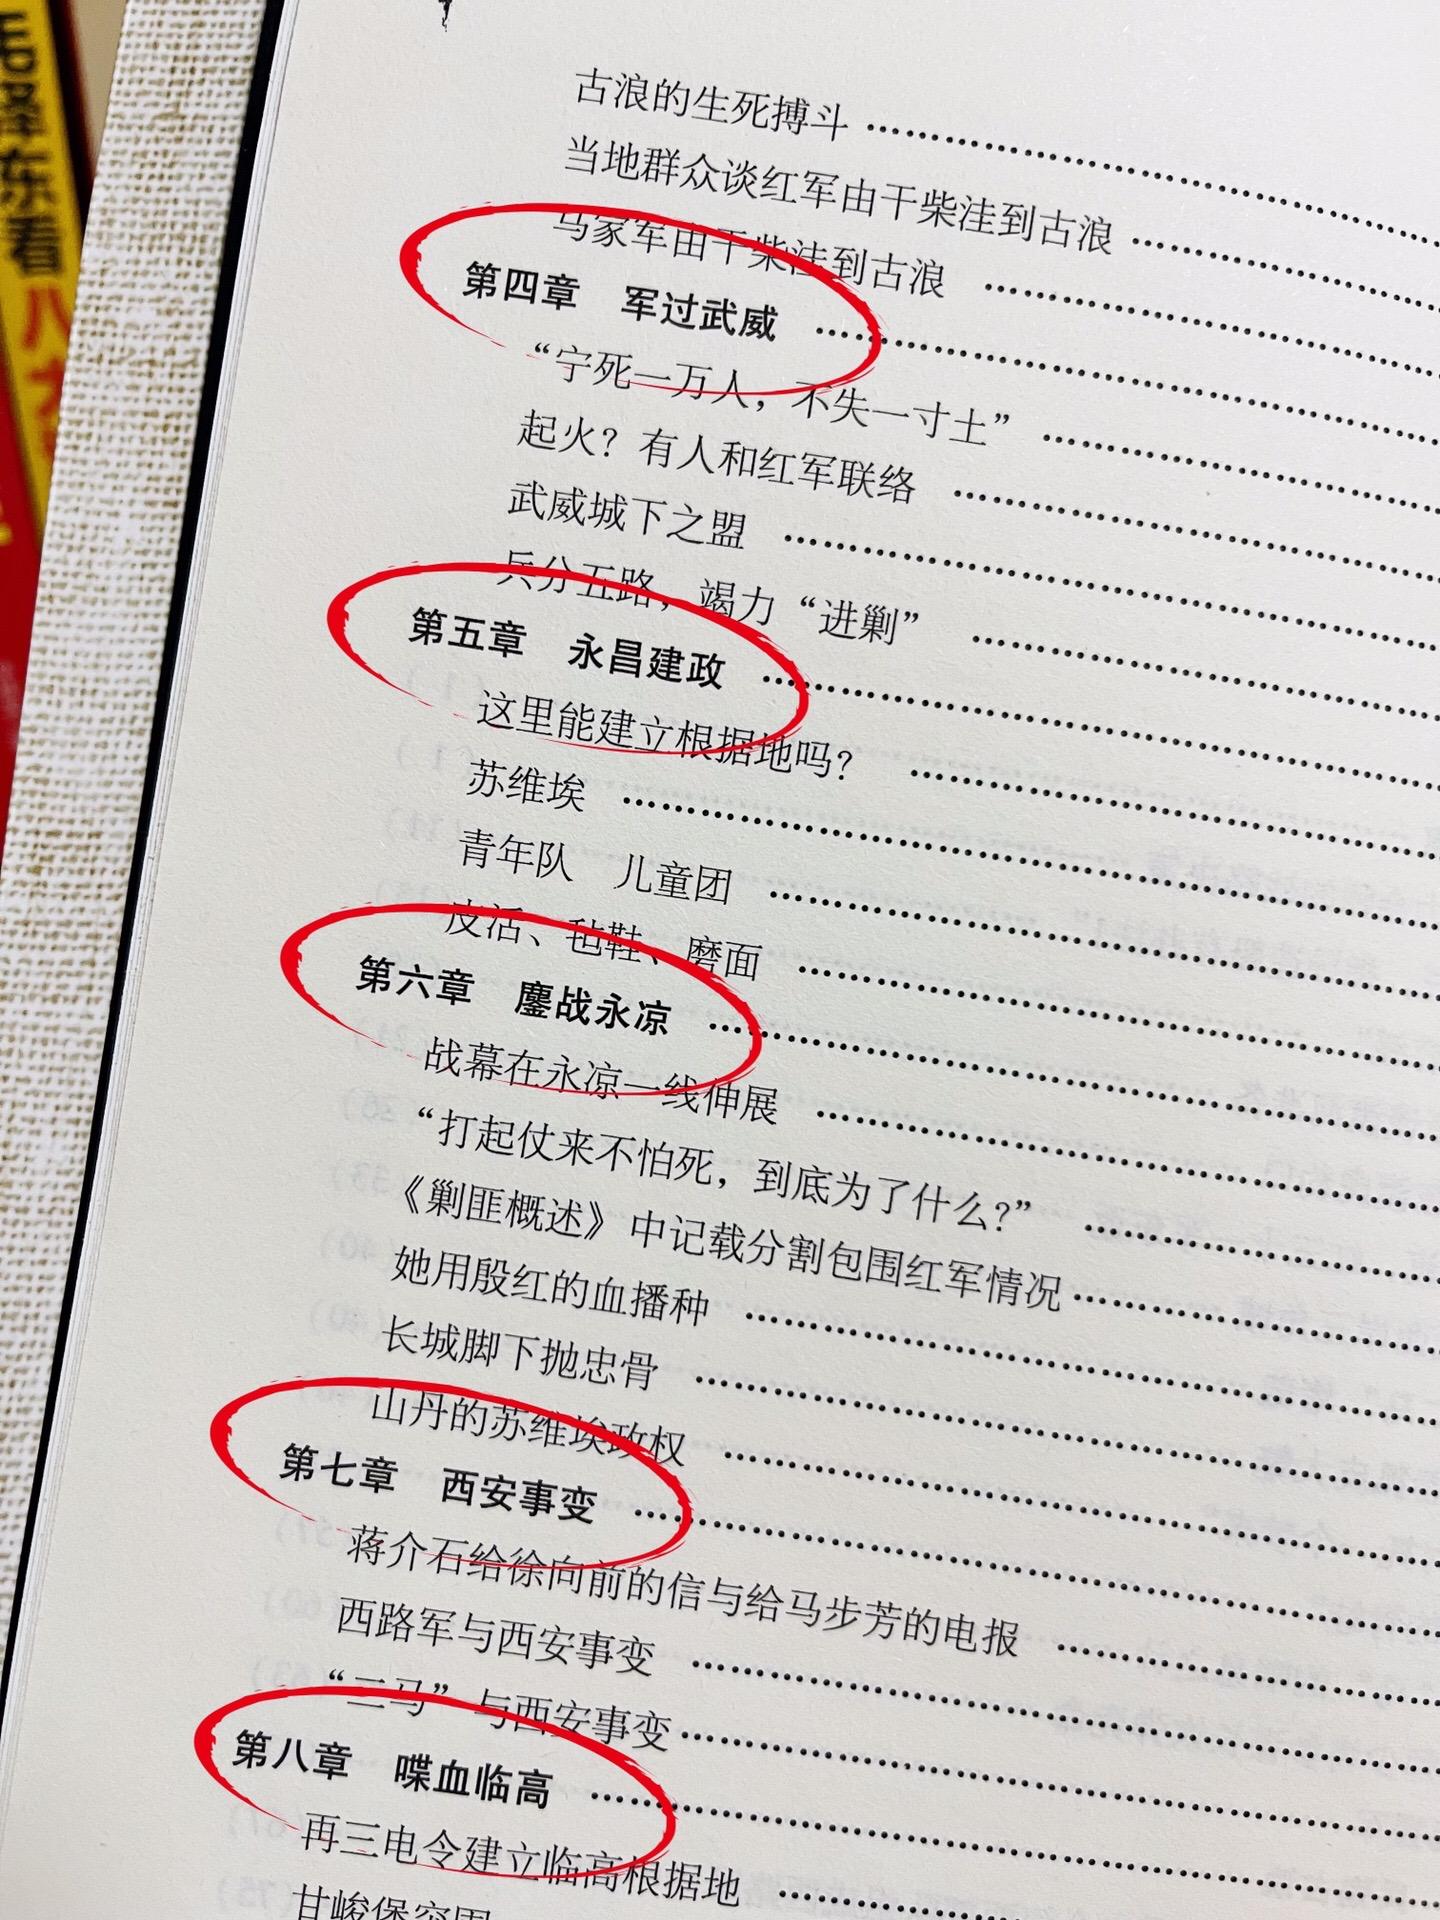 毛泽东看八
古浪的生死搏斗
当地群众谈红军由干柴洼到古浪
马家军由干柴洼到古浪
第四章 军过武威
“宁死一万人，不失一寸土”
起火？有人和红军联络
武威城下之盟
兵分五路，竭力“进剿”
第五章 永昌建政
这里能建立根据地吗？
苏维埃
青年队 儿童团
皮活、毡鞋、磨面
第六章 鏖战永凉
战幕在永凉一线伸展
“打起仗来不怕死，到底为了什么？”
《剿匪概述》中记载分割包围红军情况
她用殷红的血播种
长城脚下抛忠骨
山丹的苏维埃政权
第七章 西安事变
蒋介石给徐向前的信与给马步芳的电报
西路军与西安事变
“二马”与西安事变
第八章 喋血临高
再三电令建立临高根据地
甘峻堡突围